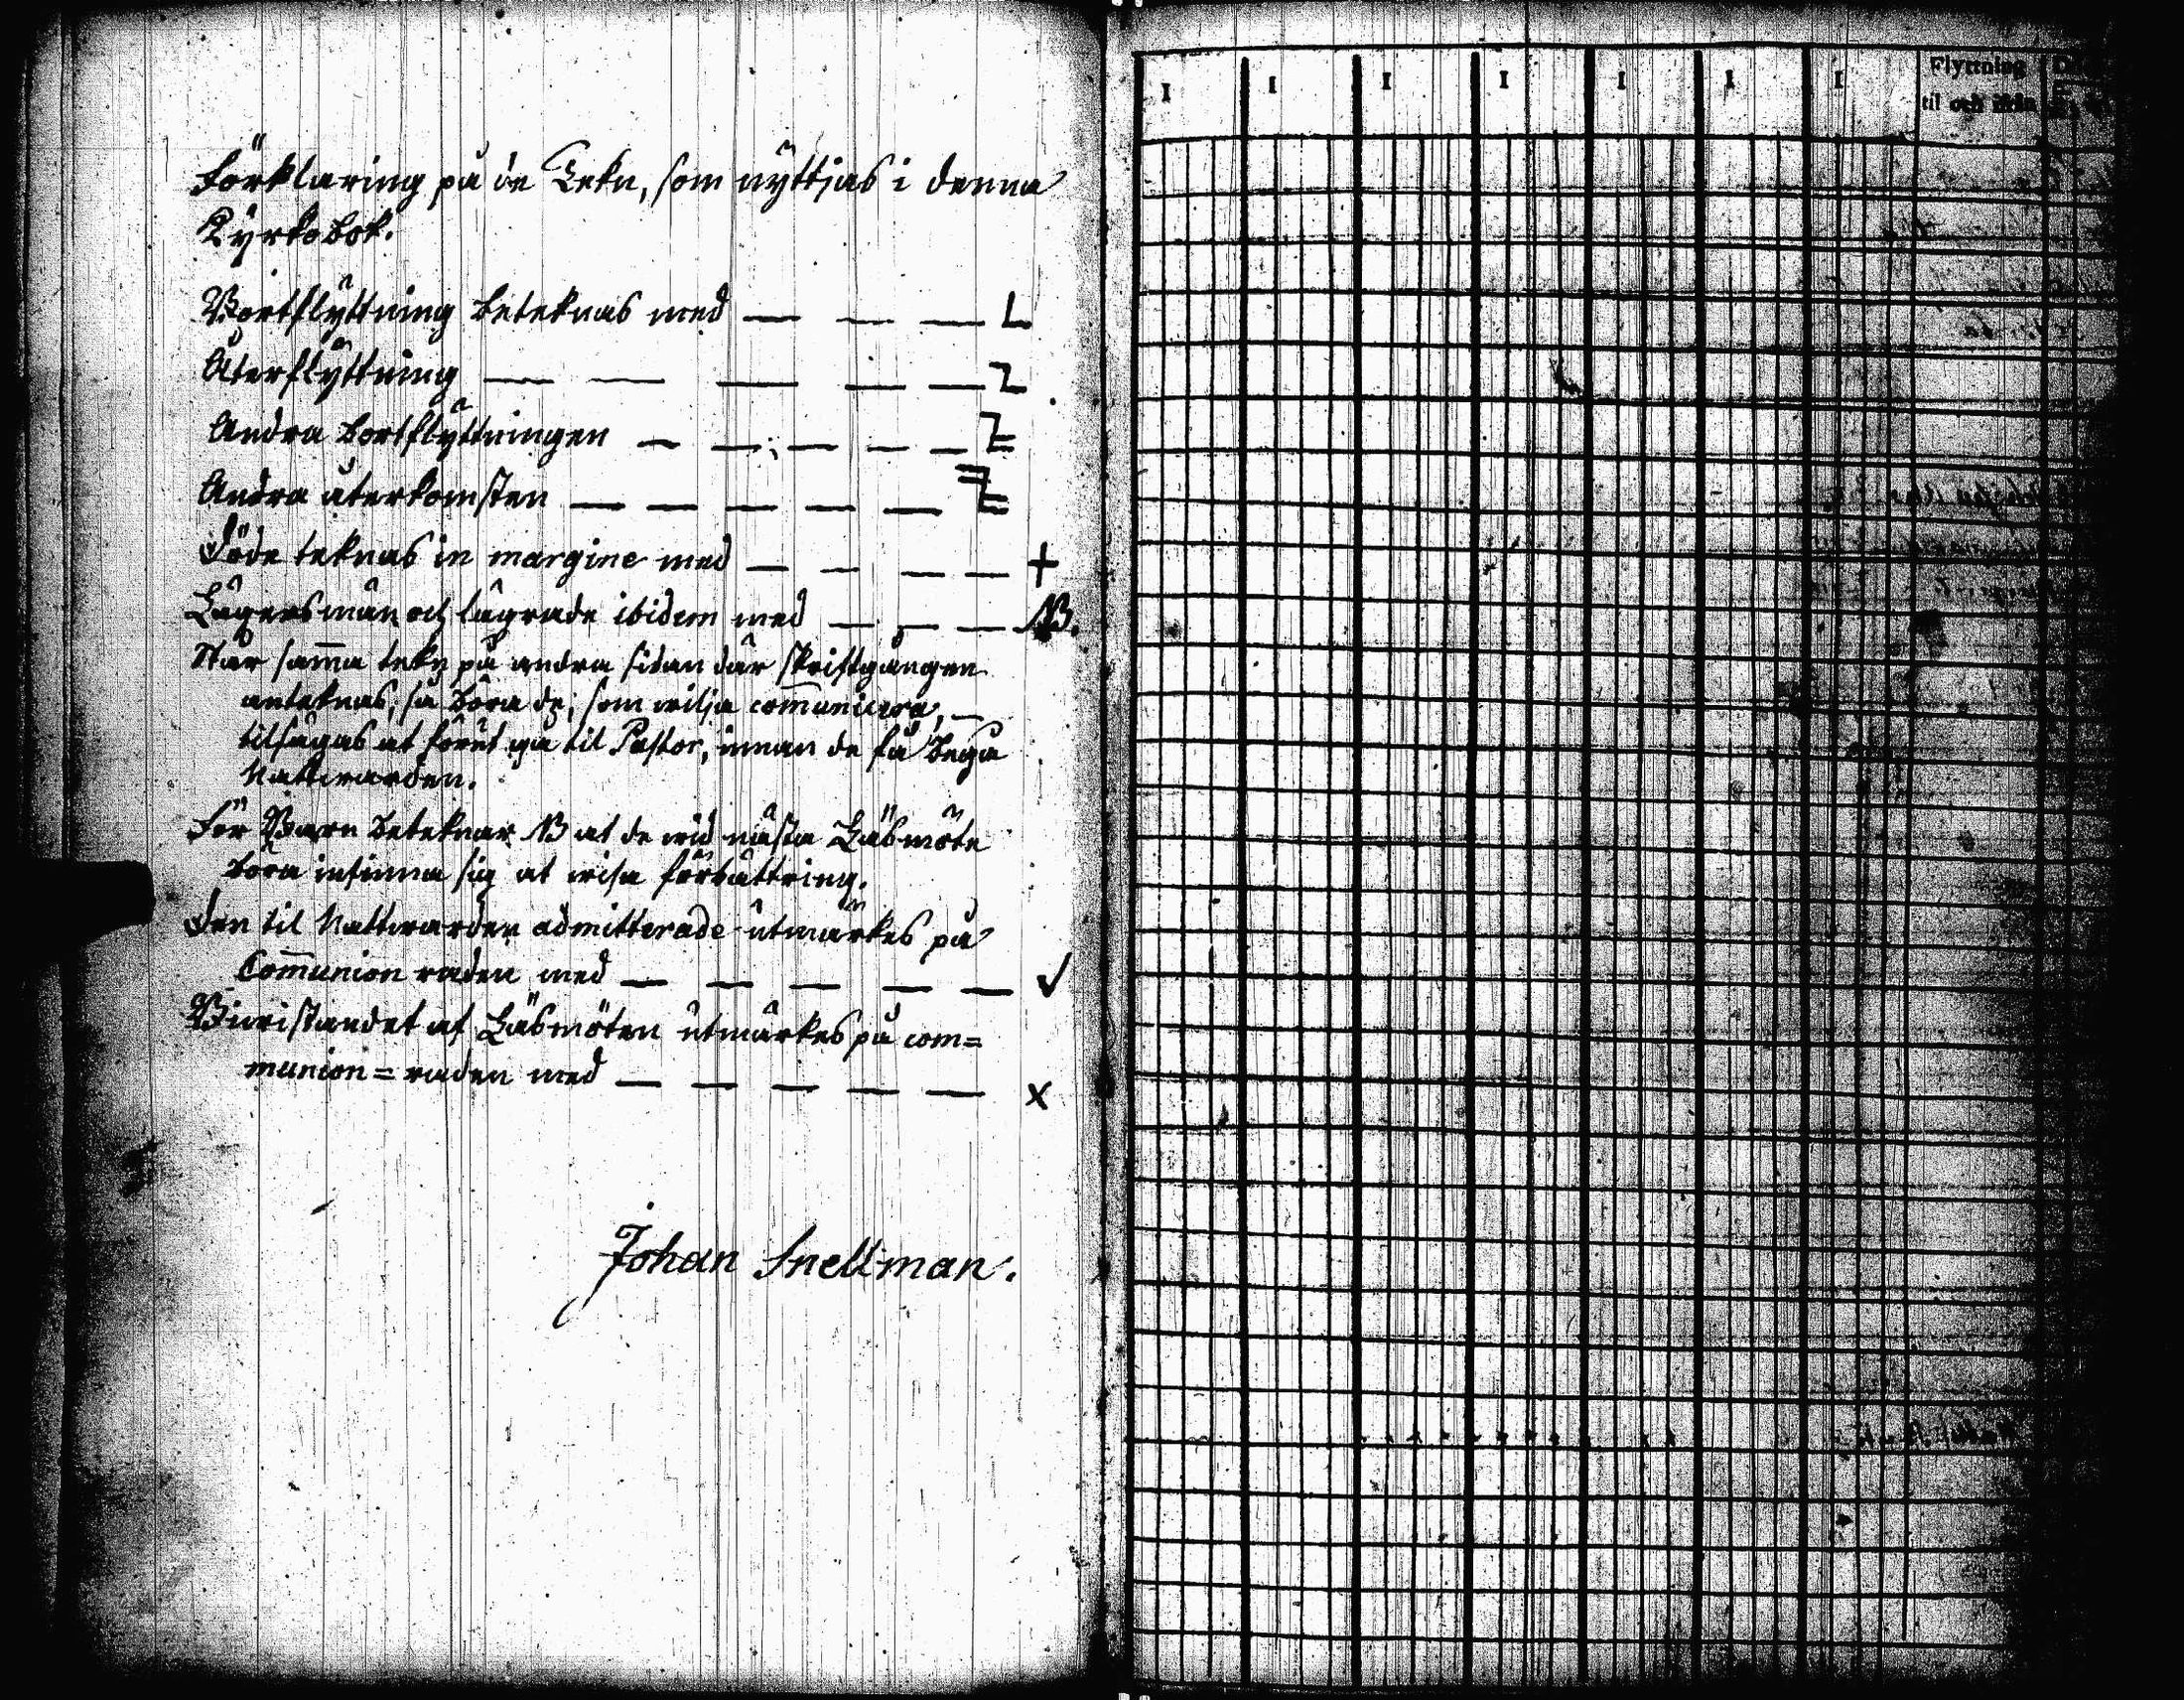 Förklaring på de Tekn, som nyttjas i denna
Kyrkobok.
Bortflyttning beteknas med — — — L
Återflyttning — — — — — Z
Andra bortflyttningen — — — — —
Andra återkomsten — — — — —
Döde teknas in margine med — — — — +
Lägersmän och lägrade ibidem med — — — NB.
Står sam̅a tekn på andra sidan där skriftgången
anteknas, så böra de, som wilja com̅unicera, —
tilsägas at förut gå til Pastor, innan de få begå
Nattwarden.
För Barn beteknar NB at de wid nästa Läsmöte
böra infinna sig at wisa förbättring.
Den til Nattwarden admitterade utmärkes på
Com̅union raden med — — — — — √
Biwistandet af Läsmöten utmärkes på com=
munion=raden med — — — — — x
Johan Snellman.
I I I I I I I Flyttning
til och ifrån